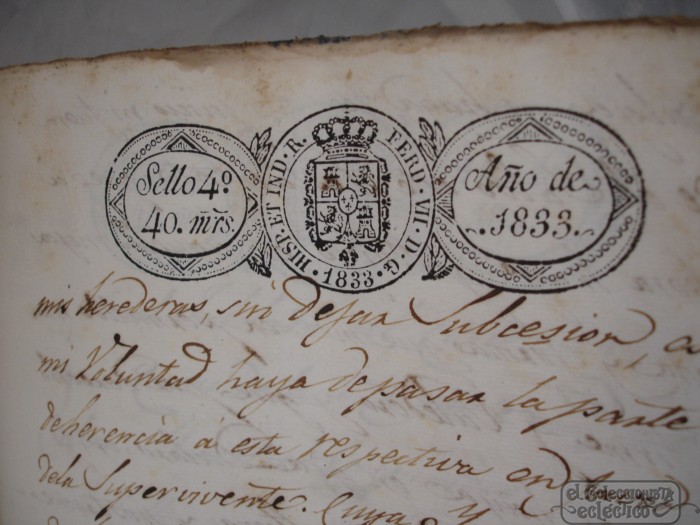 Sello 4º
40. mrs.
FERD. VII. D. G. HISP. ET IND. R.
1833
Año de
1833.
mis herederas, sin dejar Subcesion, a
mi Voluntad haya depasar la parte
deherencia á esta respectiva en
dela Supervivente. Cuya y
el coleccionista
ecléctico